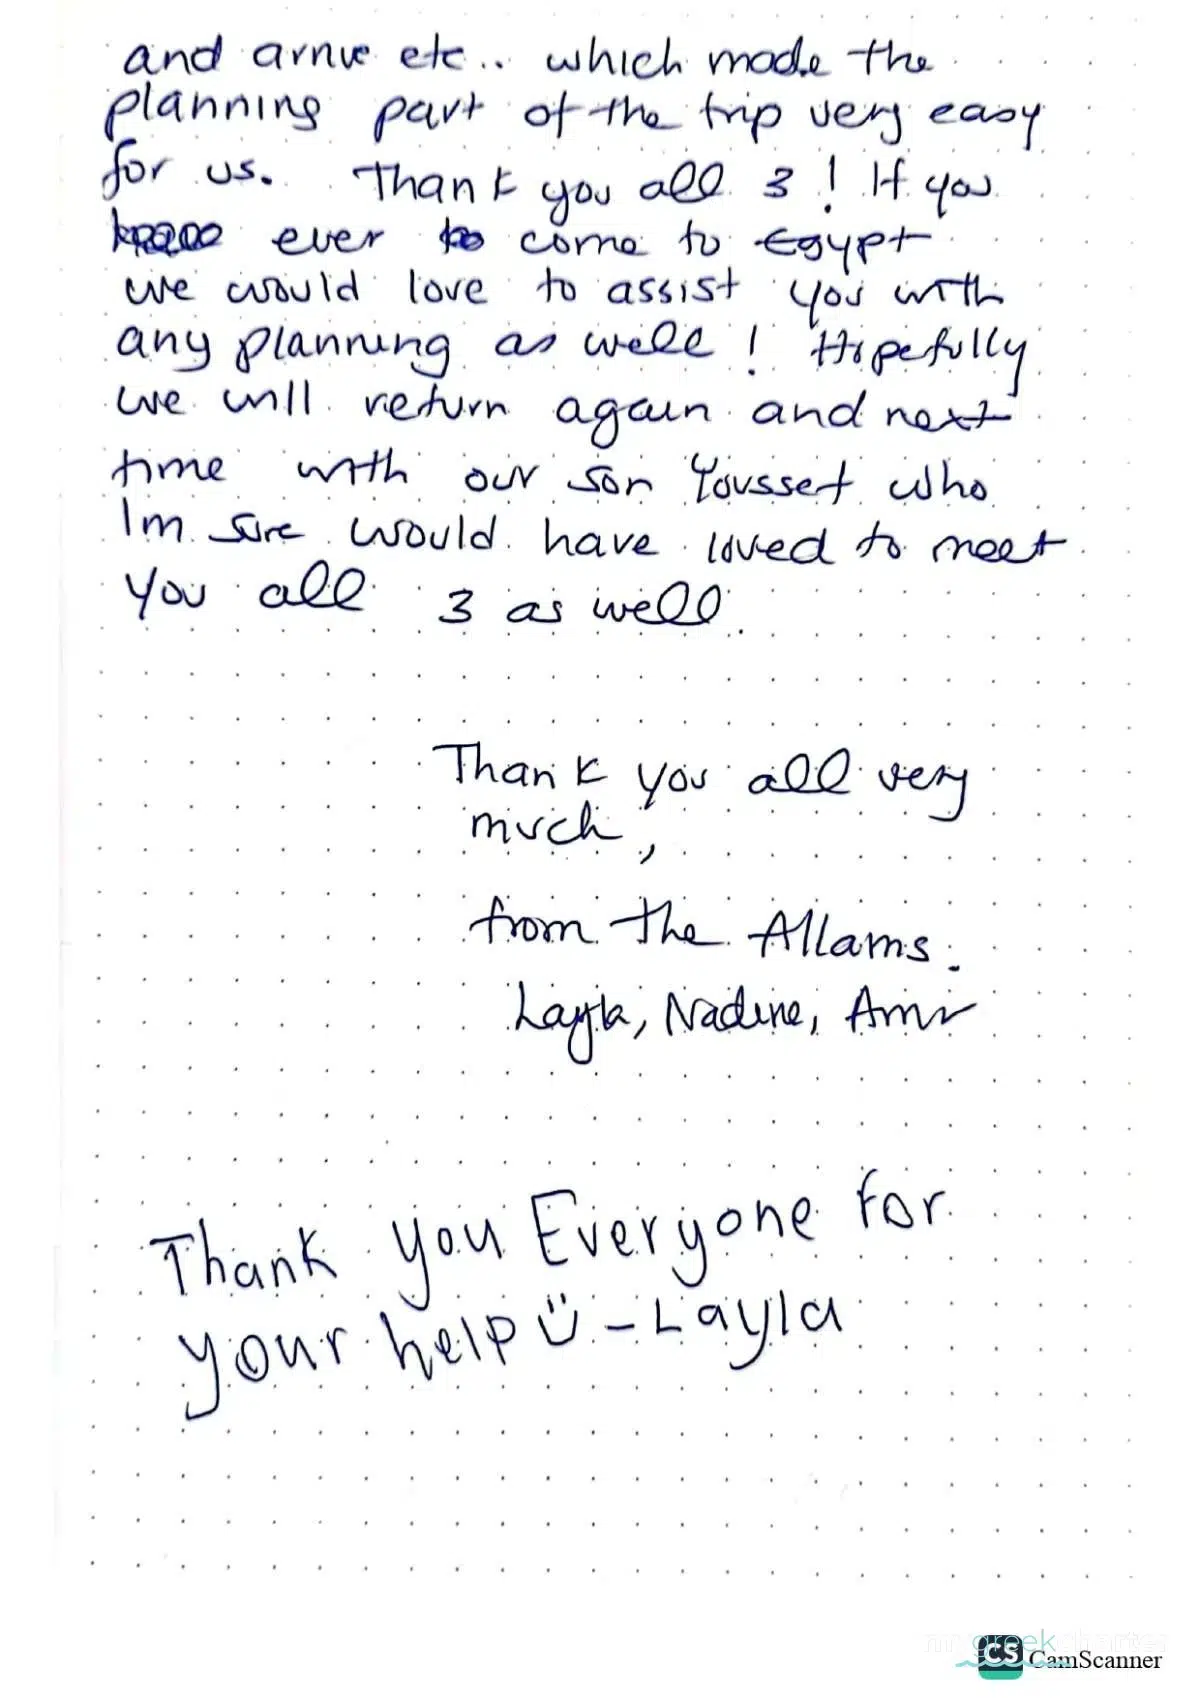 and arrive etc.. which made the
planning part of the trip very easy
for us. Thank you all 3! If you
ever come to Egypt
we would love to assist you with
any planning as well! Hopefully
we will return again and next
time with our son Youssef who
Im sure would have loved to meet
you all 3 as well.
Thank you all very
much,
from the Allams.
Layla, Nadine, Amr
Thank you Everyone for
your help – Layla
my greek charter
CS CamScanner